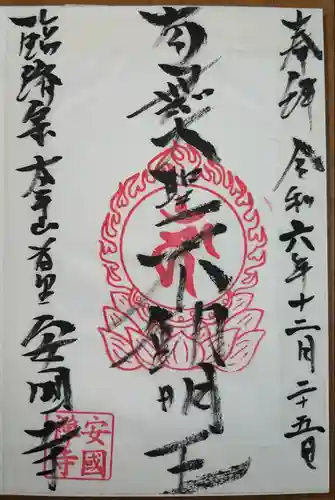 奉拝 令和六年十二月二十五日
大聖不動明王
臨済宗 太平山 安国寺
安國
禪寺